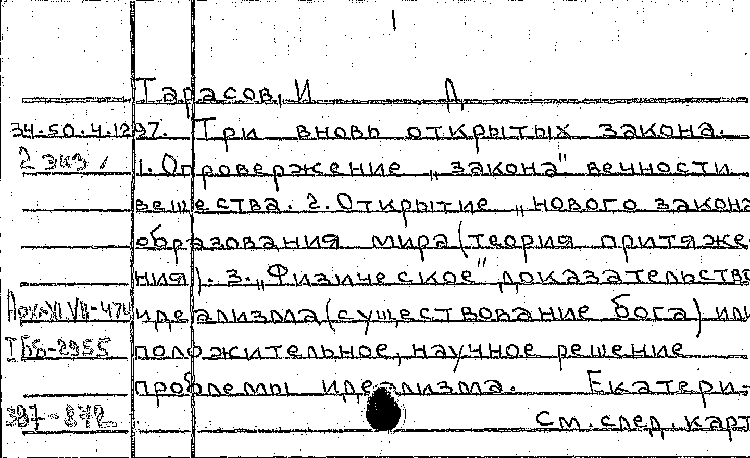 1
Тарасов, И Д
34-50.4.1297. Три вновь открытых закона.
2 экз. 1. Опровержение „закона" вечности
вещества. 2. Открытие „нового закона
образования мира (теория притяже
ния). 3. „Физическое" доказательство
идеализма (существование бога) или
I Бб-2955 положительное, научное решение
проблемы идеализма. Екатери-
397-872 См. след. карт